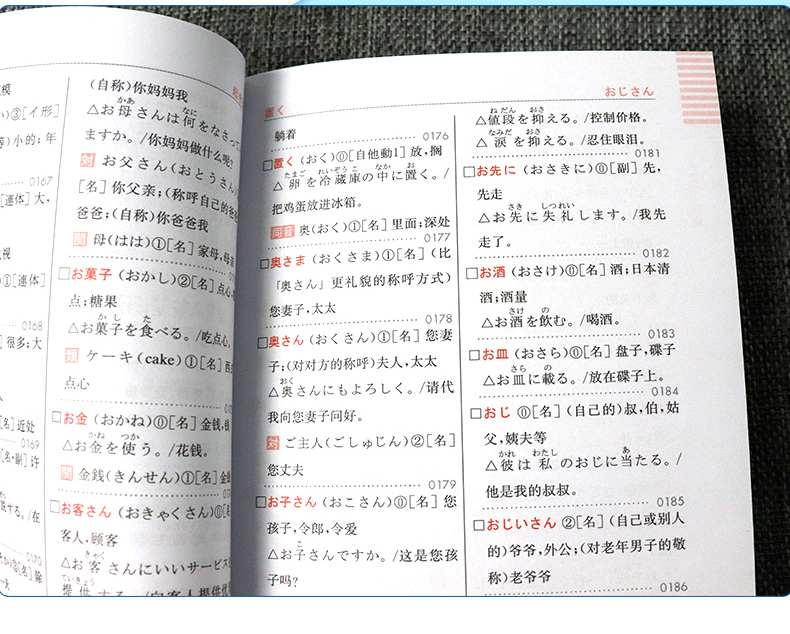 模
③[イ形]
等)小的;年
0167
[連体]大,
视
①[連体]
0168
很多;大
[名]近处
0169
[名・副]许
る。/在
0170
[名]除
(自称)你妈妈我
△お母さんは何をなさって
かあ
なに
ますか。/你妈妈做什么呢?
対 お父さん(おとうさん)
[名]你父亲;(称呼自己的爸
爸爸;(自称)你爸爸我
関 母(はは)①[名]家母,母亲
□お菓子(おかし)②[名]点心
点;糖果
か し
た
△お菓子を食べる。/吃点心。
類 ケーキ(cake)①[名]西
点心
□お金(おかね)⓪[名]金钱,钱
かね
つか
△お金を使う。/花钱。
関 金銭(きんせん)①[名]金
□お客さん(おきゃくさん)⓪
客人,顾客
きゃく
△お客さんにいいサービス
ていきょう
提供する。/向客人提供优
置く
おじさん
躺着
0176
□置く(おく)⓪[自他動1]放,搁
たまご
れいぞうこ
なか
お
△卵を冷蔵庫の中に置く。/
把鸡蛋放进冰箱。
同音 奥(おく)①[名]里面;深处
0177
□奥さま(おくさま)①[名](比
「奥さん」更礼貌的称呼方式)
您妻子,太太
0178
□奥さん(おくさん)①[名]您妻
子;(对对方的称呼)夫人,太太
おく
△奥さんにもよろしく。/请代
我向您妻子问好。
対 ご主人(ごしゅじん)②[名]
您丈夫
0179
□お子さん(おこさん)⓪[名]您
孩子,令郎,令爱
こ
△お子さんですか。/这是您孩
子吗?
ねだん
おさ
△値段を抑える。/控制价格。
なみだ
おさ
△涙を抑える。/忍住眼泪。
0181
□お先に(おさきに)⓪[副]先,
先走
さき
しつれい
△お先に失礼します。/我先
走了。
0182
□お酒(おさけ)⓪[名]酒;日本清
酒;酒量
さけ
の
△お酒を飲む。/喝酒。
0183
□お皿(おさら)⓪[名]盘子,碟子
さら
の
△お皿に載る。/放在碟子上。
0184
□おじ ⓪[名](自己的)叔,伯,姑
父,姨夫等
かれ
わたし
あ
△彼は私のおじに当たる。/
他是我的叔叔。
0185
□おじいさん ②[名](自己或别人
的)爷爷,外公;(对老年男子的敬
称)老爷爷
0186